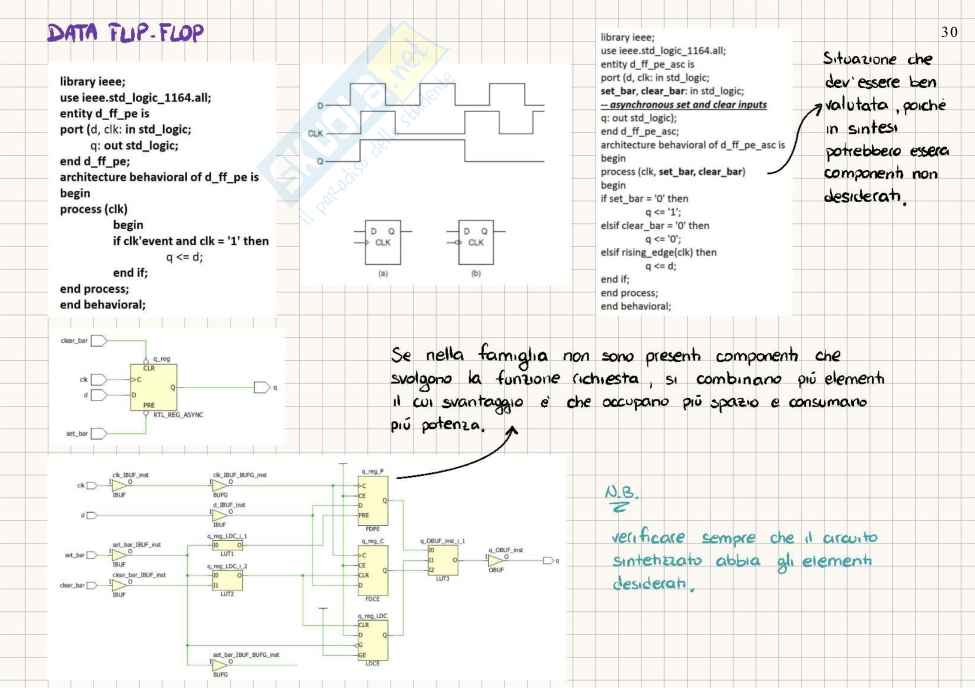 DATA FLIP-FLOP
30
library ieee;
use ieee.std_logic_1164.all;
entity d_ff_pe is
port (d, clk: in std_logic;
q: out std_logic;
end d_ff_pe;
architecture behavioral of d_ff_pe is
begin
process (clk)
begin
if clk'event and clk = '1' then
q <= d;
end if;
end process;
end behavioral;
D
CLK
Q
D Q
CLK
(a)
D Q
CLK
(b)
SKUOLA.net
il paradiso dello studente
library ieee;
use ieee.std_logic_1164.all;
entity d_ff_pe_asc is
port (d, clk: in std_logic;
set_bar, clear_bar: in std_logic;
-- asynchronous set and clear inputs
q: out std_logic);
end d_ff_pe_asc;
architecture behavioral of d_ff_pe_asc is
begin
process (clk, set_bar, clear_bar)
begin
if set_bar = '0' then
q <= '1';
elsif clear_bar = '0' then
q <= '0';
elsif rising_edge(clk) then
q <= d;
end if;
end process;
end behavioral;
Situazione che
dev'essere ben
valutata, poiché
in sintesi
potrebbero essera
componenti non
desiderati.
clear_bar
clk
d
set_bar
q_reg
CLR
C
D
Q
PRE
RTL_REG_ASYNC
q
Se nella famiglia non sono presenti componenti che
svolgono la funzione richiesta, si combinano più elementi
il cui svantaggio é che occupano più spazio e consumano
più potenza.
clk
clk_IBUF_inst
I O
IBUF
clk_IBUF_BUFG_inst
I O
BUFG
d
d_IBUF_inst
I O
IBUF
set_bar
set_bar_IBUF_inst
I O
IBUF
clear_bar
clear_bar_IBUF_inst
I O
IBUF
q_reg_LDC_i_1
I0 O
LUT1
q_reg_LDC_i_2
I0
I1
O
LUT2
set_bar_IBUF_BUFG_inst
I O
BUFG
q_reg_P
C
CE
D
PRE
Q
FDPE
q_reg_C
C
CE
CLR
D
Q
FDCE
q_reg_LDC
CLR
D
G
GE
Q
LDCE
q_OBUF_inst_i_1
I0
I1
I2
O
LUT3
q_OBUF_inst
I O
OBUF
q
N.B.
verificare sempre che il circuito
sintetizzato abbia gli elementi
desiderati.